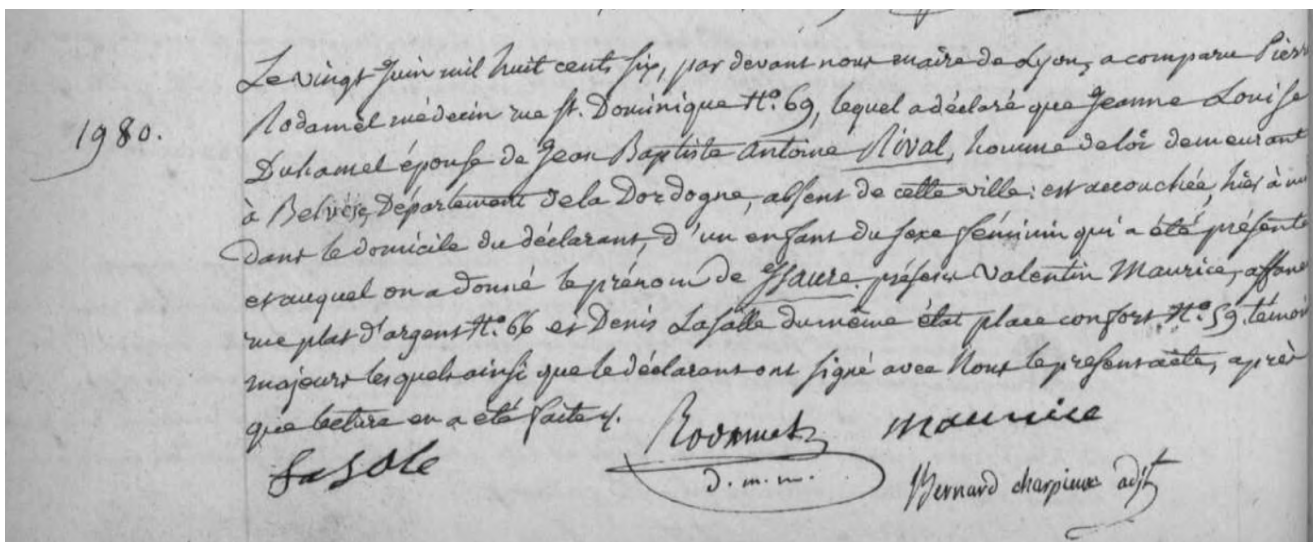 Le vingt Juin mil huit cents six, par devant nous maire de Lyon, a comparu Pierr
1980.
Rodamel médecin rue St. Dominique No. 69, lequel a déclaré que Jeanne Louise
Duhamel épouse de Jean Baptiste Antoine Rival, homme de loi demeurant
à Belvès, Département de la Dordogne, absent de cette ville: est accouchée, hier à
dans le domicile du déclarant, d'un enfant du sexe féminin qui a été présenté
et auquel on a donné le prénom de Isaure. présens Valentin Maurice, affan
rue plat d'argent No. 66 et Denis Lasalle du même état place confort No. 59. témoi
majeurs lesquels ainsi que le déclarant ont signé avec Nous le présent acte, après
que lecture en a été faite.
Rodamel maurice
LaSale
d. m. m.
Bernard charpieux adjt